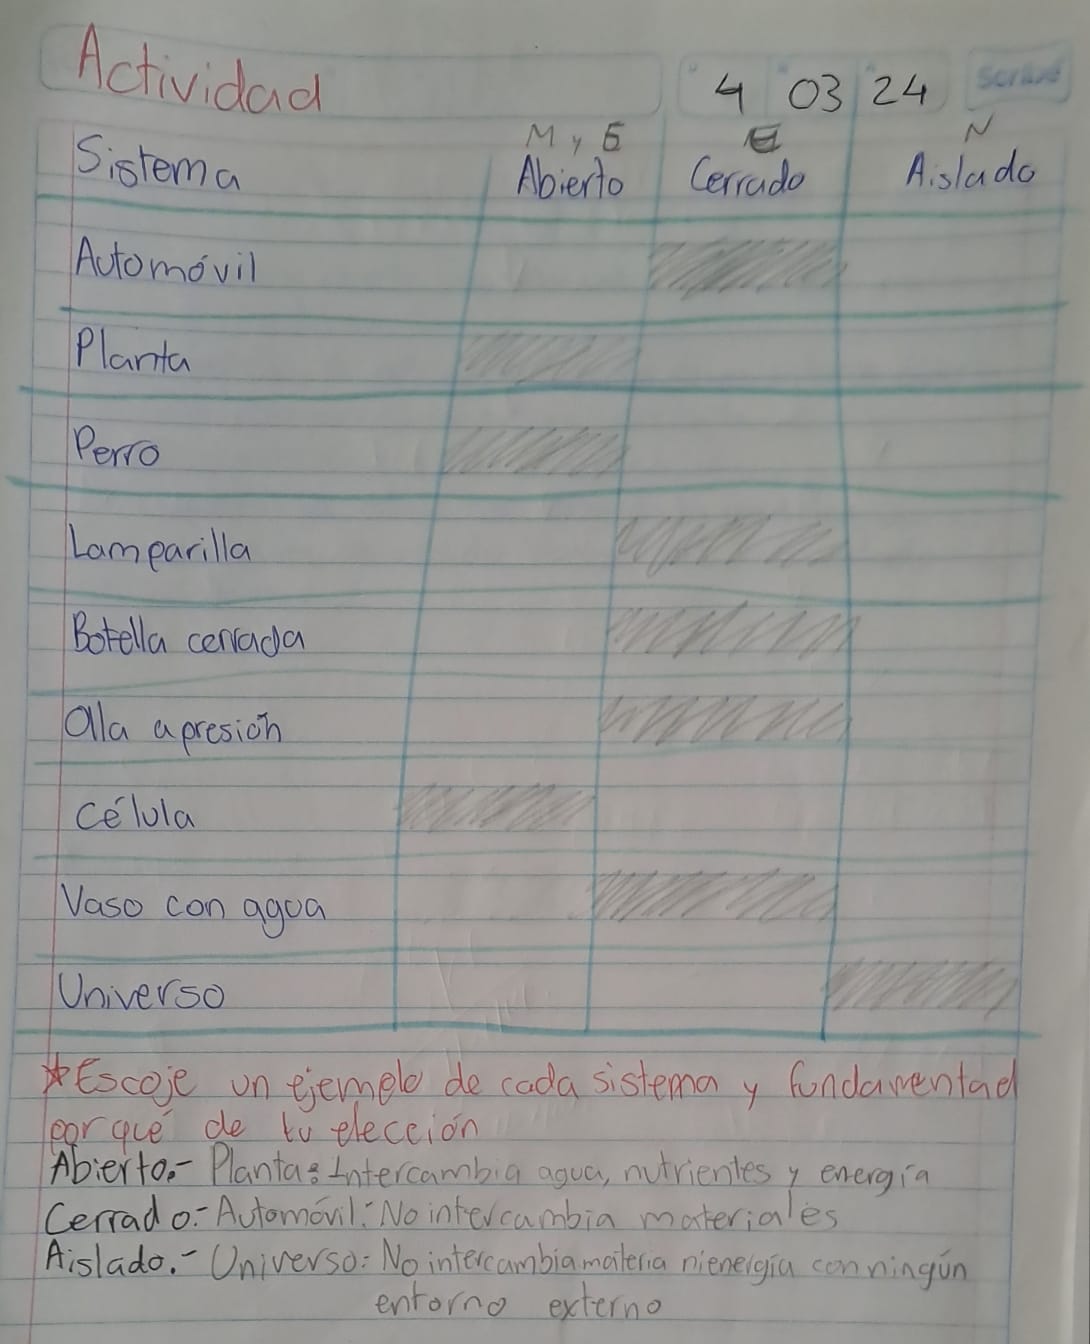 Actividad
4 03 24
Scribe
M y E E N
Sistema Abierto Cerrado Aislado
Automóvil
Planta
Perro
Lamparilla
Botella cerrada
Olla a presión
célula
Vaso con agua
Universo
*Escoje un ejemplo de cada sistema y fundamentad
por qué de tu elección
Abierto.- Planta: Intercambia agua, nutrientes y energía
Cerrado.- Automóvil: No intercambia materiales
Aislado.- Universo: No intercambia materia ni energía con ningún
entorno externo